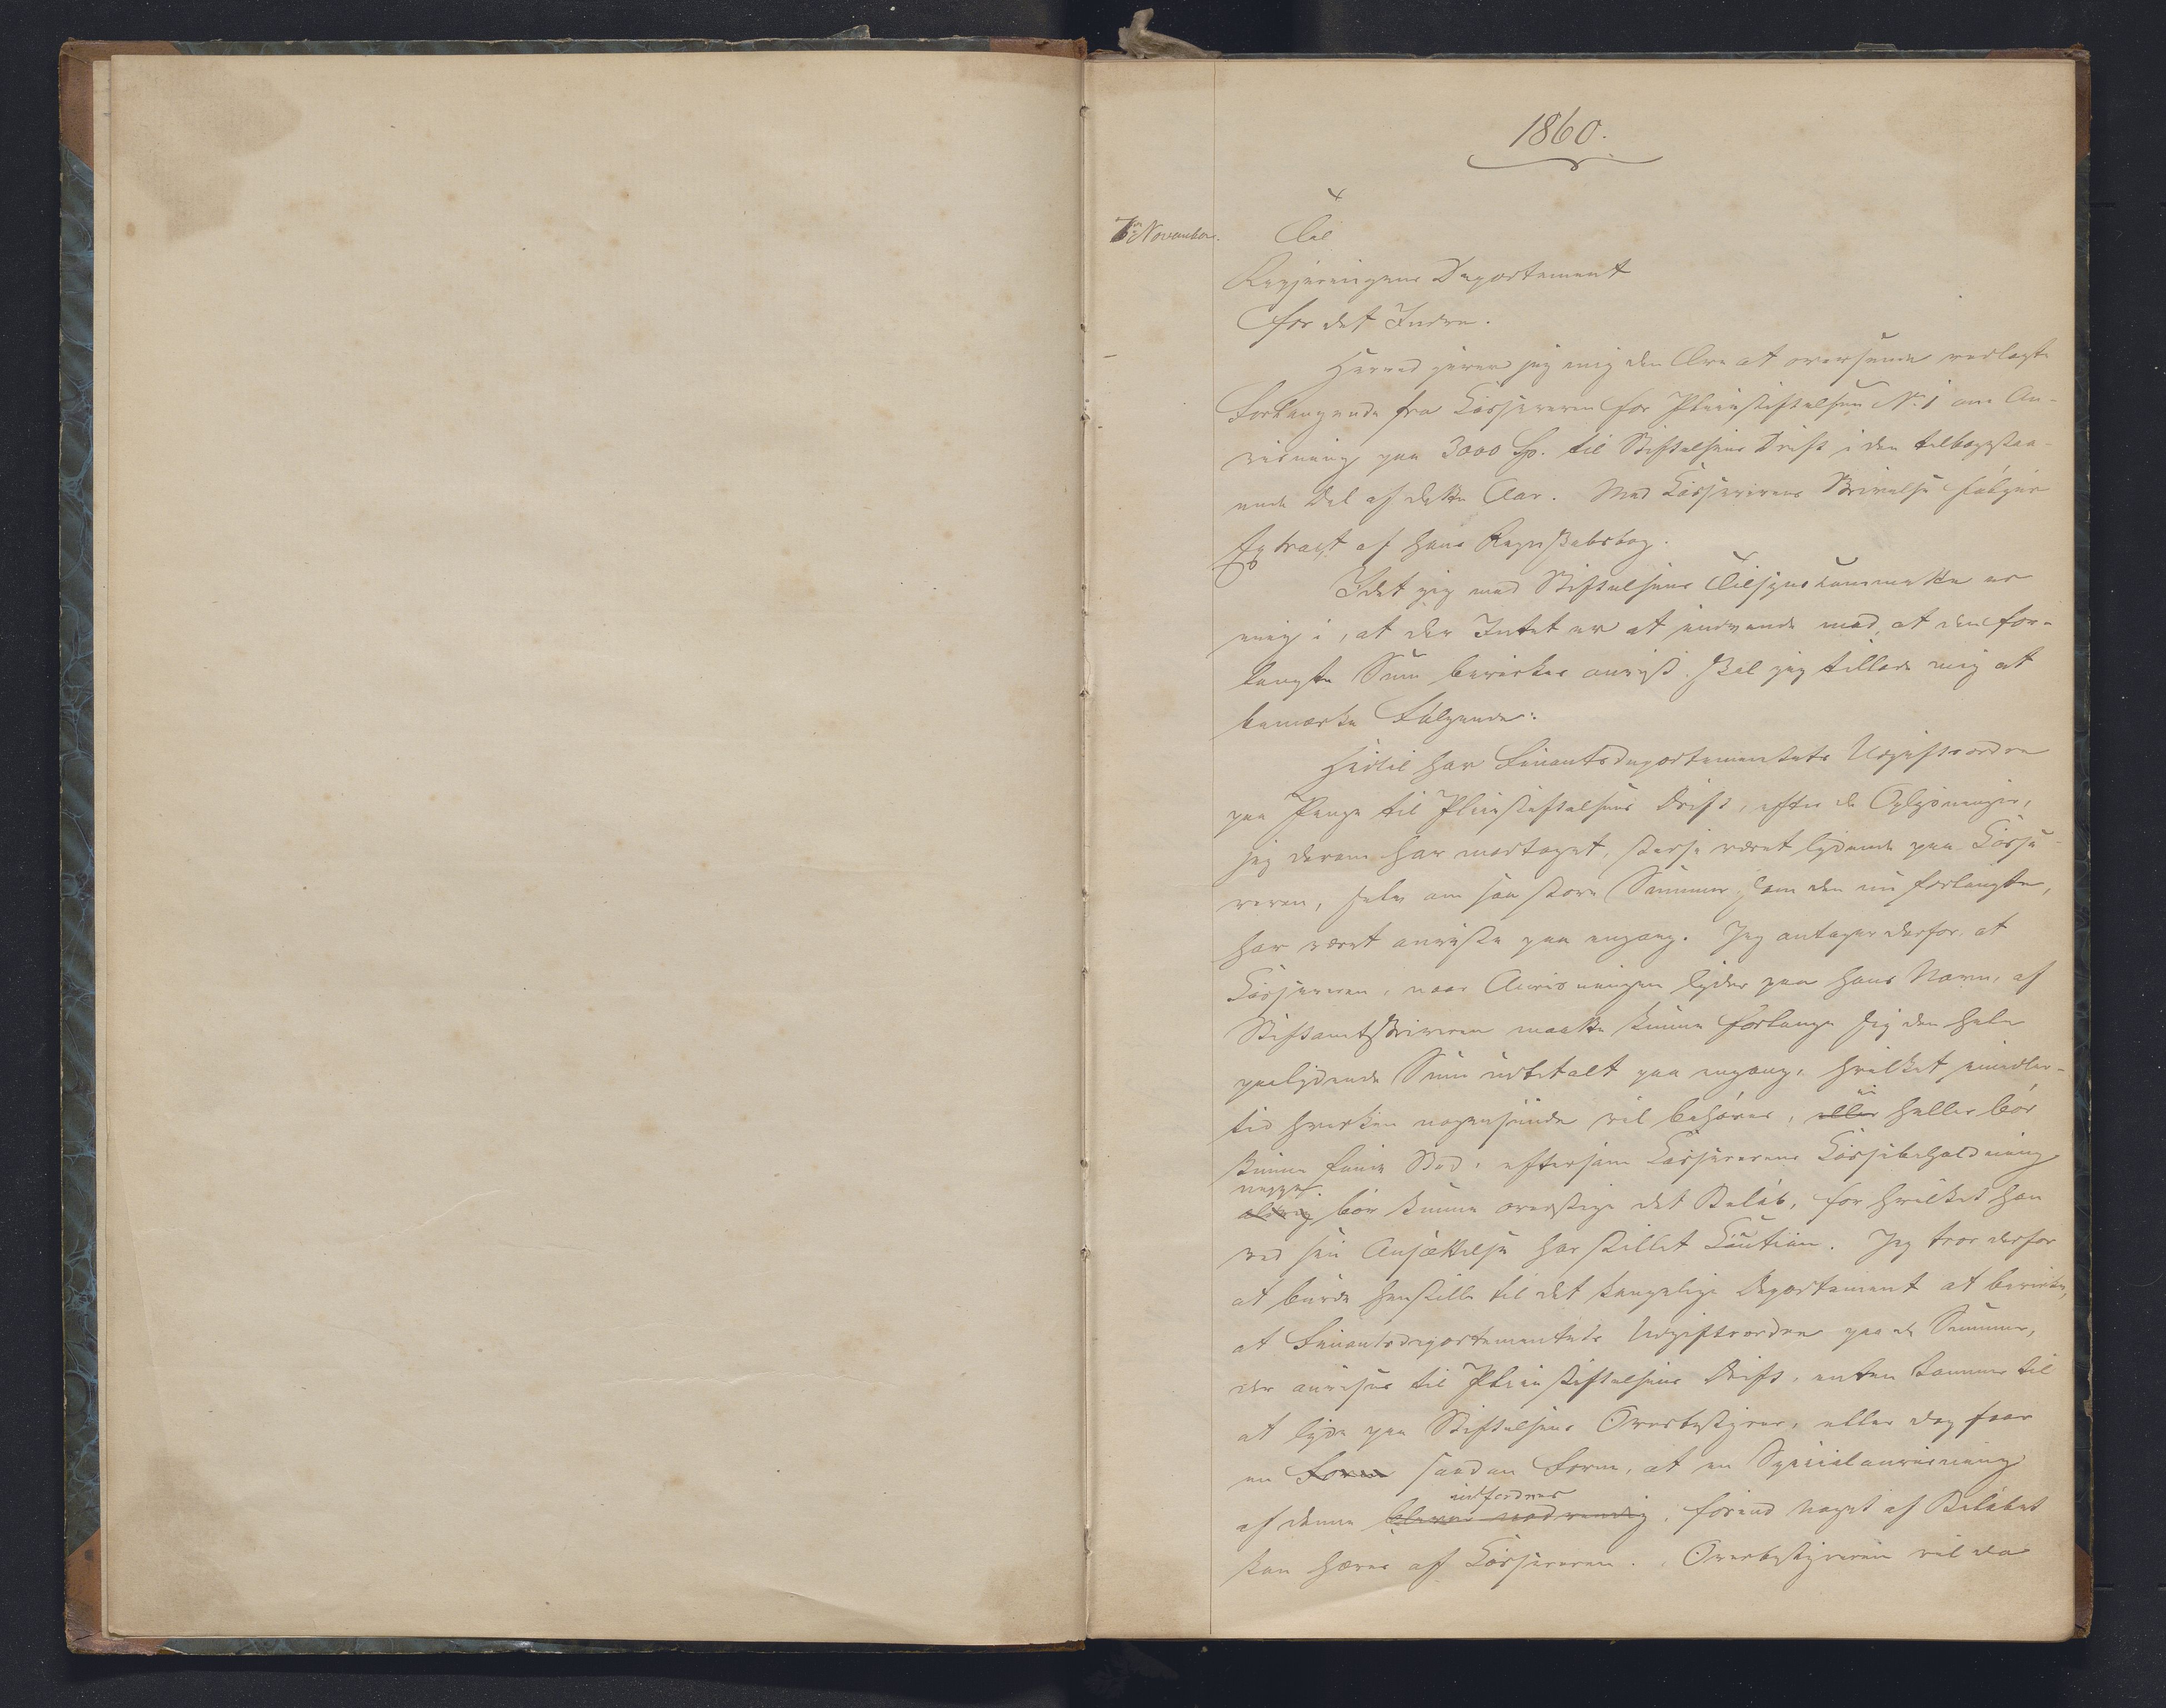 1860.
7de November.
Til
Regjeringens Departement
for det Indre.
Herved giver jeg mig den Ære at oversende vedlagte
Forlangende fra Kassereren for Pleiestiftelsen No 1 om An-
visning paa 3000 Sp. til Stiftelsens Drift i den tilbagestaa-
ende Del af dette Aar. Med Kassererens Skrivelse følger
Extract af hans Regnskabsbog.
Idet jeg med Stiftelsens Tilsynskommitte er
enig i, at der Intet er at indvende mod, at den for-
langte Sum bevirkes anvist, skal jeg tillade mig at
bemærke Følgende:
Hidtil har Finantsdepartementets Udgiftsordre
paa Penge til Pleiestiftelsens Drift, efter de Oplysninger,
jeg derom har modtaget, stedse været lydende paa Kasse-
reren, selv om saa store Summer, som den nu forlangte,
har været anviste paa engang. Jeg antager derfor, at
Kassereren, naar Anvisningen lyder paa hans Navn, af
Stiftamtskriveren maatte kunne forlange sig den hele
paalydende Sum udbetalt paa engang, hvilket imidler-
tid hverken nogensinde vil behøves, eller heller bør
kunne finde Sted, eftersom Kassererens Kassebeholdning
neppe
aldrig bør kunne overstige det Beløb, for hvilket han
ved sin Ansættelse har stillet Kaution. Jeg tror derfor
at burde henstille til det kongelige Departement at bevirke,
at Finantsdepartementets Udgiftsordre paa de Summer,
der anvises til Pleiestiftelsens Drift, enten kommer til
at lyde paa Stiftelsens Overbestyrer, eller dog faar
en Form saadan Form, at en Specialanvisning
udfordres
af denne bliver nødvendig, førend Noget af Beløbet
kan hæves af Kassereren. Overbestyreren vil da